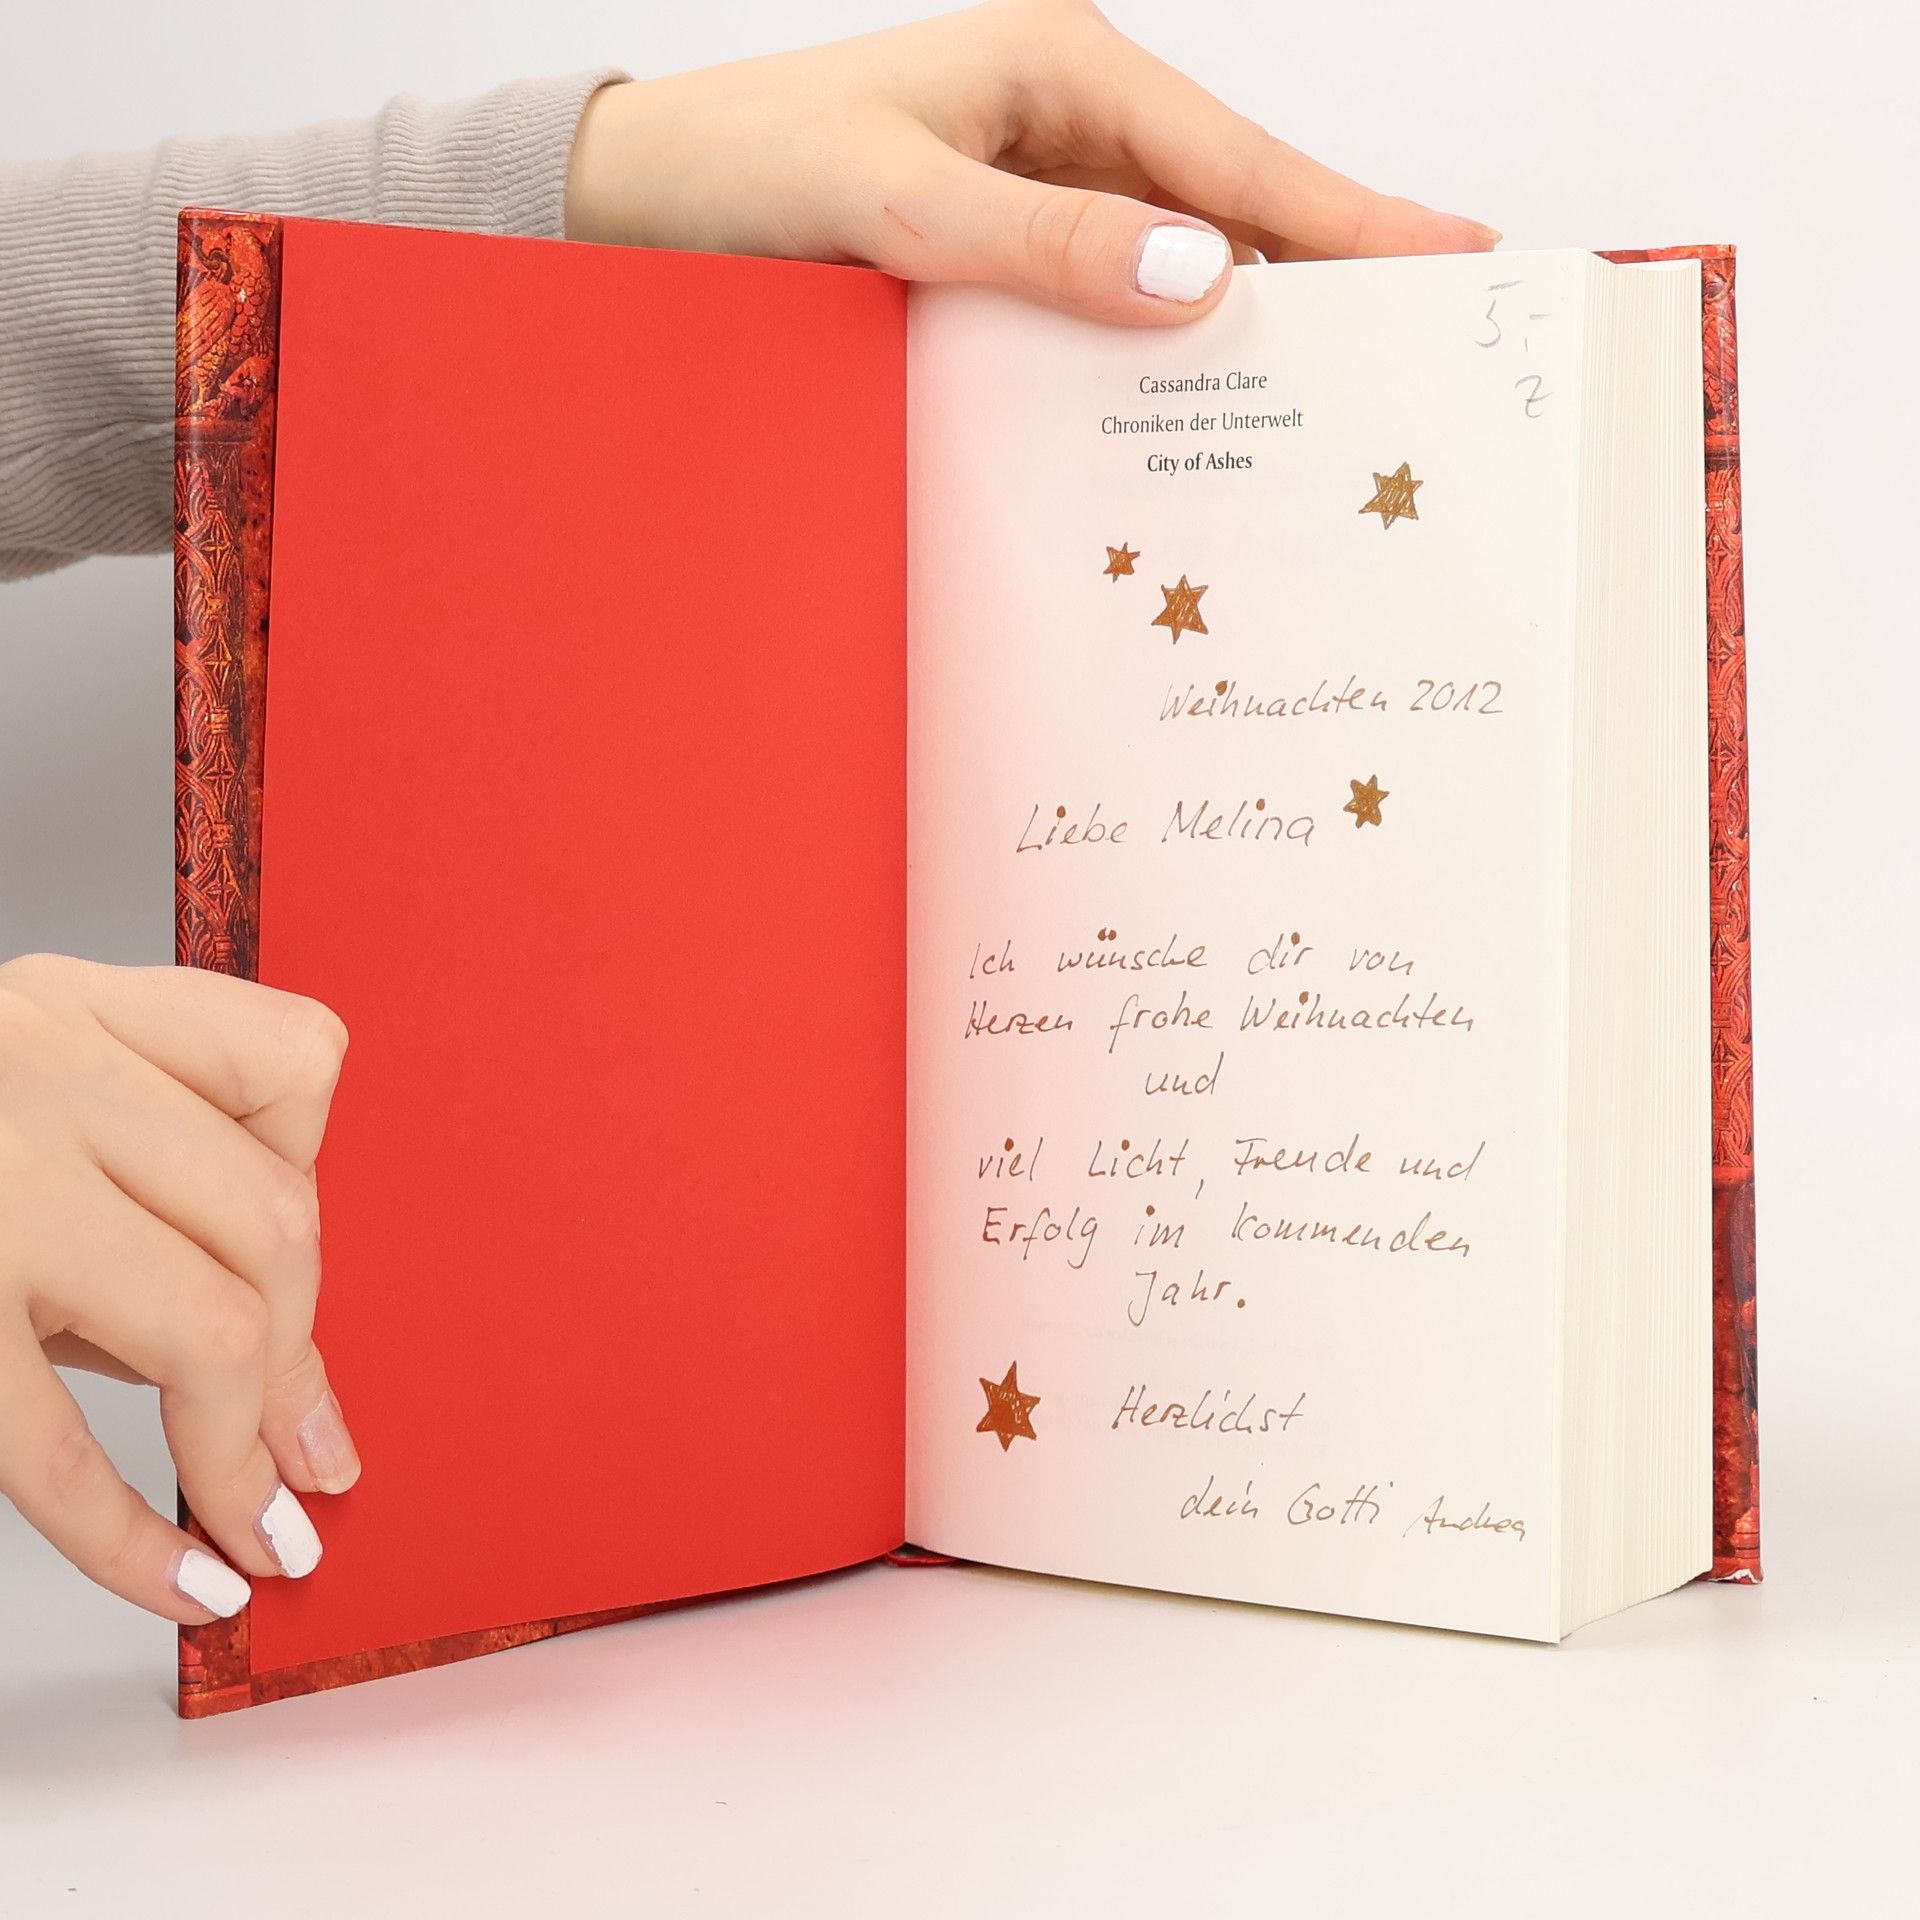 5,-
Z
Cassandra Clare
Chroniken der Unterwelt
City of Ashes
Weihnachten 2012
Liebe Melina
Ich wünsche dir von
Herzen frohe Weihnachten
und
viel Licht, Freude und
Erfolg im kommenden
Jahr.
Herzlichst
dein Gotti Andrea